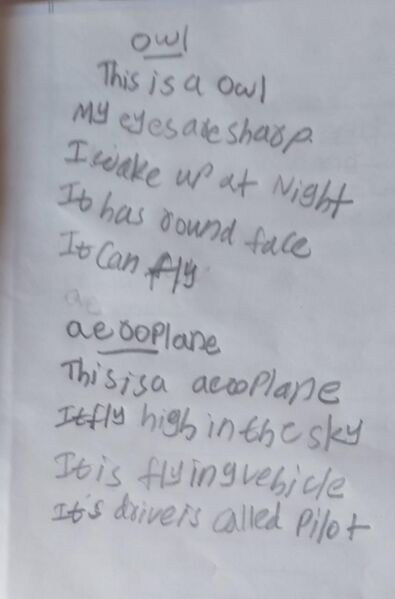 owl
This is a owl
My eyes are sharp.
I wake up at Night
It has round face
It Can fly
ae
aerooplane
This is a aerooplane
It fly high in the sky
It is flying vehicle
It's driver is called Pilot